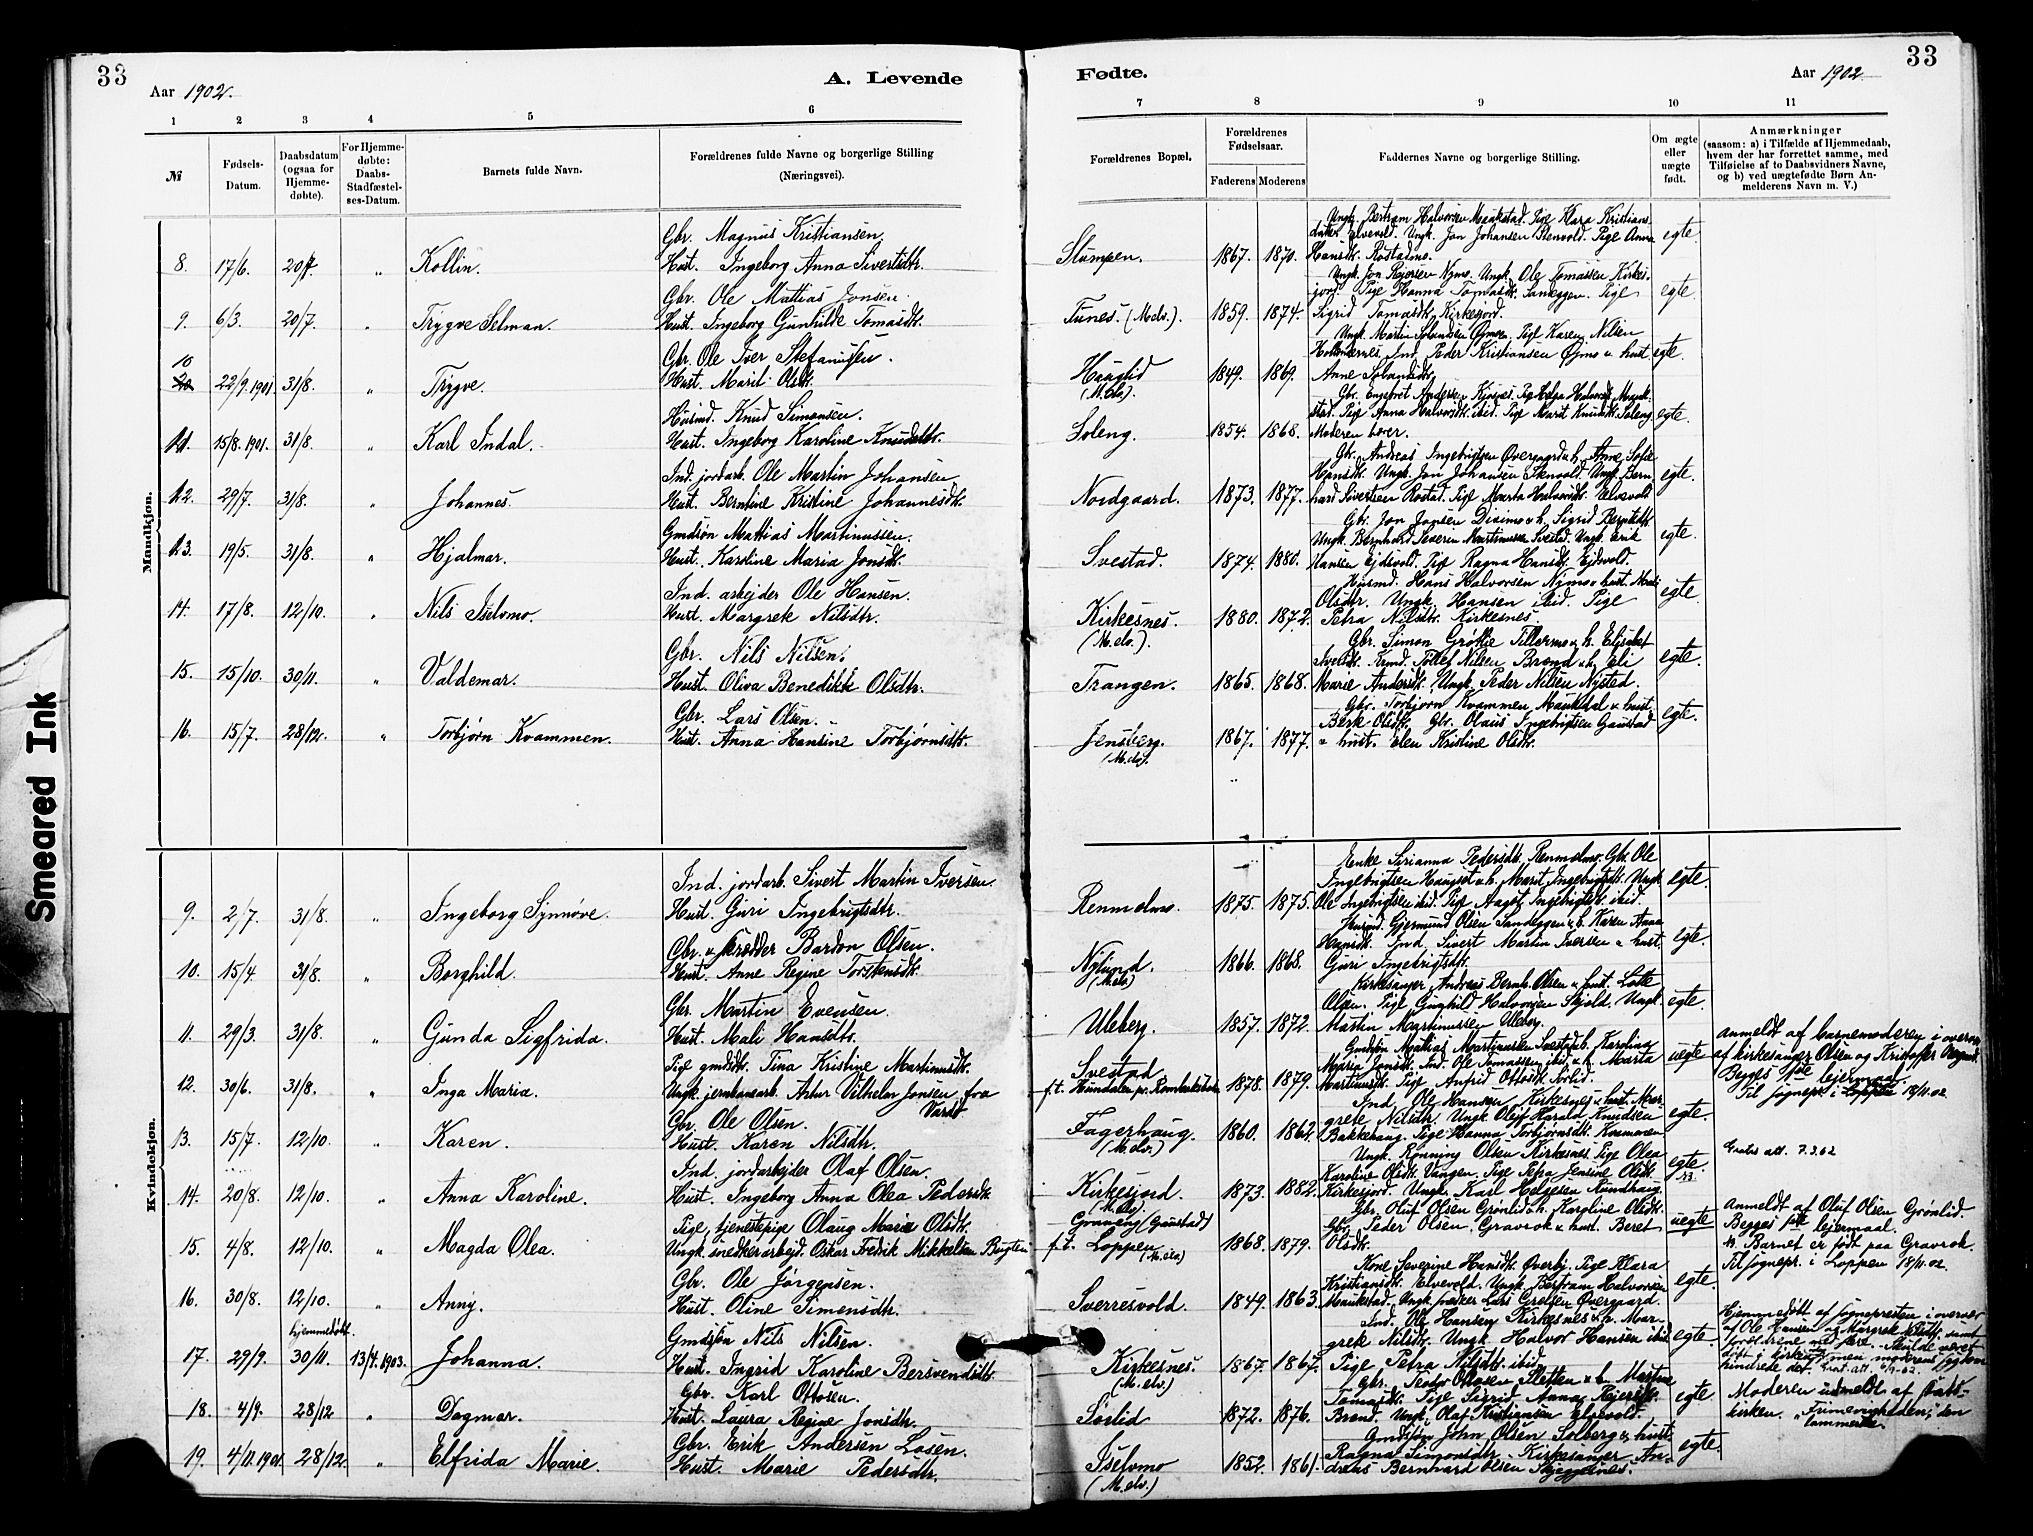 33
Aar 1902.
A. Levende
1 2 3 4 5 6
№
Fødsels-Datum.
Daabsdatum (ogsaa for Hjemme-døbte).
For Hjemme-døbte: Daabs-Stadfæstel-ses-Datum.
Barnets fulde Navn.
Forældrenes fulde Navne og borgerlige Stilling (Næringsvei).
Mandkjøn.
Gbr. Magnus Kristiansen.
8. 17/6. 20/7. " Kollin. Hust. Ingeborg Anna Sivertsdtr.
Gbr. Ole Mattias Jonsen.
9. 6/3. 20/7. " Trygve Selman. Hust. Ingeborg Gunhilde Tomasdtr.
10 Gbr. Ole Iver Stefanussen.
20 22/9.1901 31/8. " Trygve. Hust. Marit Olsdtr.
Husmd. Knud Simonsen.
11. 15/8.1901. 31/8. " Karl Indal. Hust. Ingeborg Karoline Knudsdtr.
Ind. jordarb. Ole Martin Johansen
12. 29/7. 31/8. " Johannes. Hust. Berntine Kristine Johannesdtr.
Gmdsøn Mattias Martinussen.
13. 19/5. 31/8. " Hjalmar. Hust. Karoline Maria Jonsdtr.
Ind. arbejder Ole Hansen.
14. 17/8. 12/10. " Nils Iselvmo. Hust. Margrek Nilsdtr.
Gbr. Nils Nilsen.
15. 15/10. 30/11. " Valdemar. Hust. Oliva Benedikte Olsdtr.
Gbr. Lars Olsen.
16. 15/7. 28/12. " Torbjørn Kvammen. Hust. Anna Hansine Torbjørnsdtr.
Kvindekjøn.
Ind. jordarb. Sivert Martin Iversen.
9. 2/7. 31/8. " Ingeborg Synnøve. Hust. Guri Ingebrigtsdtr.
Gbr. & skrædder Bardon Olsen.
10. 15/4. 31/8. " Borghild. Hust. Anne Regine Torstensdtr.
Gbr. Martin Evensen
11. 29/3. 31/8. " Gunda Sigfrida. Hust. Mali Hansdtr.
Pige gmdsdtr. Tina Kristine Martinusdtr.
12. 30/6. 31/8. " Inga Maria. Ungk. jernbanearb. Artur Vilhelm Jonsen fra Vardø.
Gbr. Ole Olsen.
13. 15/7. 12/10. " Karen. Hust. Karen Nilsdtr.
Ind. jordarbejder Olaf Olsen.
14. 20/8. 12/10. " Anna Karoline. Hust. Ingeborg Anna Olea Pedersdtr.
Pige, tjenestepige Olaug Maria Olsdtr.
15. 4/8. 12/10. " Magda Olea. Ungk. snedkerarbejd. Oskar Fredrik Mikkelsen Bugten
Gbr. Ole Jørgensen.
16. 30/8. 12/10. " Anny. Hust. Oline Simensdtr.
hjemmedøbt. Gmdsøn Nils Nilsen.
17. 29/9. 30/11. 13/4.1903. Johanna. Hust. Ingrid Karoline Bersvendsdtr.
Gbr. Karl Ottosen.
18. 4/9. 28/12 " Dagmar. Hust. Laura Regine Jonsdtr.
Gbr. Erik Andersen Løsen.
19. 4/11.1901 28/12. " Elfrida Marie. Hust. Marie Pedersdtr.
Smeared Ink
33
Fødte.
Aar 1902
7 8 9 10 11
Forældrenes Bopæl.
Forældrenes Fødselsaar.
Faderens Moderens
Faddernes Navne og borgerlige Stilling.
Om ægte eller uægte født.
Anmærkninger
(saasom: a) i Tilfælde af Hjemmedaab, hvem der har forrettet samme, med Tilføielse af to Daabsvidners Navne, og b) ved uægtefødte Børn Anmelderens Navn m. V.)
Ungk. Bertram Halvorsen Maukstad. Pige Klara Kristians-
datter Elvevold. Ungk. Jon Johansen Stenvold. Pige Anna
Slumpen. 1867. 1870. Hansdtr. Rostadmo. egte.
Ungk. Jon Nymo. Ungk. Ole Tomassen Kirkes-
jord. Pige Hanna Tomasdtr. Sandeggen. Pige
Funes. (M.elv.). 1859. 1874. Sigrid Tomasdtr. Kirkesjord. egte.
Ungk. Martin Øjmo. Pige Karen Nilsen
Ind. Peder Kristiansen Øjmo & hust.
Hauglid (M.elv.). 1849. 1869. Anne egte.
Gbr. Engebret Andersen Pige Helga Halvorsdtr. Mauk-
stad. Pige Anna Halvorsdtr. ibid. Pige Marit Knudsdtr. Soleng
Soleng. 1854. 1868. Moderen bærer. egte.
Gbr. Andreas Ingebrigtsen Øvergaard & h. Anne Sofie
Hansdtr. Ungk. Jon Johansen Stenvold. Ungk. Bern-
Nordgaard. 1873. 1877. hard Sivertsen Rostad. Pige Marta Halvorsdtr. Elvevold egte.
Gbr. Jon Jonsen Divimo & h. Sigrid Berntsdtr.
Ungk. Bernhard Severin Martinussen Svestad. Ungk. Erik
Svestad. 1874. 1880. Hansen Ejdsvold. Pige Ragna Hansdtr. Ejdsvold. egte.
Husmd. Hans Halvorsen Nymo & hust.
Olsdtr. Ungk. Hansen ibid. Pige
Kirkesnes. (M.elv.). 1880. 1872. Petra Nilsdtr. Kirkesnes. egte.
Gbr. Simon Grøtte Tillermo & h. Elisabet
Nilsen Brand & h. Eli
Trangen. 1865. 1868. Marie Andersdtr. Ungk. Peder Nilsen Nysted. egte.
Gbr. Torbjørn Kvammen, Maukdal & hust.
Berit Olsdtr. Gbr. Olaus Ingebrigtsen Gaustad
Jensberg. (M.elv). 1867. 1877. & hust. Elen Kristine Olsdtr. egte.
Enke Sirianna Pedersdtr. Renmelmo. Gbr. Ole
Ingebrigtsen Haugset & h. Marit Ingebrigtsdtr. Ungk.
Renmelmo. 1875. 1875. Ole Ingebrigtsen ibid. Pige Aagot Ingebrigtsdtr. ibid. egte.
Husmd. Gjermund Olsen Sandeggen & h. Karen Anna
Hansdtr. Ind. Sivert Martin Iversen & hust.
Nylund. (M.elv.) 1866. 1868. Guri Ingebrigtsdtr. egte.
Kirkesanger Andreas Bernh. Olsen & hust. Lotte
Olsen. Pige Gunhild Halvorsen Skjold. Ungk.
Uleberg. 1857. 1872. Martin Martinussen Uleberg. egte.
Gmdsøn Mattias Martinussen Svestad & h. Karoline
Maria Jonsdtr. Ind. Ole Tomassen ibid. & h. Marta
Svestad f.t. Hundalen pr. Rombaksbotn 1878. 1879. Martinusdtr. Pige Anfrid Ottosdtr. Sørlid. uegte
Anmeldt af barnemoderen i overvær
af kirkesanger Olsen og Kristoffer
Begges 1ste lejermaal.
Til sognepr. i Loppen 18/11.02.
Ind. Ole Hansen, Kirkesnes & hust. Mar-
grek Nilsdtr. Ungk. Oluf Harald Knudsen
Fagerhaug. (M.elv.) 1860. 1862. Bakkehaug. Pige Hanna Torbjørnsdtr. Kvammen egte.
Ungk. Rønning Olsen Kirkesnes. Pige Olea
Karoline Olsdtr. Vangen. Pige Petra Jensine Olsdtr.
Kirkesjord. (M.elv) 1873. 1882. Kirkesjord. Ungk. Karl Helgesen Rundhaug. egte.
Gratis att. 7.3.62
Gbr. Oluf Olsen Grønlid & h. Karoline Olsdtr.
Gbr. Peder Olsen, Gravrok & hust. Beret
Graneng (Gaustad) f.t. Loppen (M.elv) 1868. 1879. Olsdtr. uegte
Anmeldt af Oluf Olsen Grønlid.
Begges 1ste lejermaal.
Barnet er født paa Gravrok.
Til sognepr. i Loppen 18/11.02.
Kone Severine Hansdtr. Øverby. Pige Klara
Kristiansdtr. Elvevold. Ungk. Bertram Halvorsen
Sverresvold. 1849. 1863. Maukstad. Ungk. Lars Øvergaard. egte.
Ind. Ole Hansen Kirkesnes & h. Mar-
grek Nilsdtr. Ungk. Halvor Hansen ibid.
Kirkesnes. (M.elv.) 1867. 1867. Pige Petra Nilsdtr. ibid. egte.
Hjemmedøbt af sognepresten i overvær
af Ole Hansen & Margrek Nilsdtr. samt
døbt i kirken, men moderens sygdom
hindrede det.
Gbr. Ottosen Sletten & h. Martine
Tomasdtr. Pige Sigrid Anna
Sørlid 1872. 1876. Brand. Ungk. Olaf Kristiansen Elvevold. egte.
Moderen udmeldt af stats-
kirken. "Frimenigheden",
Gmdsøn John Olsen Solberg & hust.
Ragna Simonsdtr. Kirkesanger An-
Iselvmo (M.elv.) 1852. 1861. dreas Bernhard Olsen Skjeggesnes. egte.